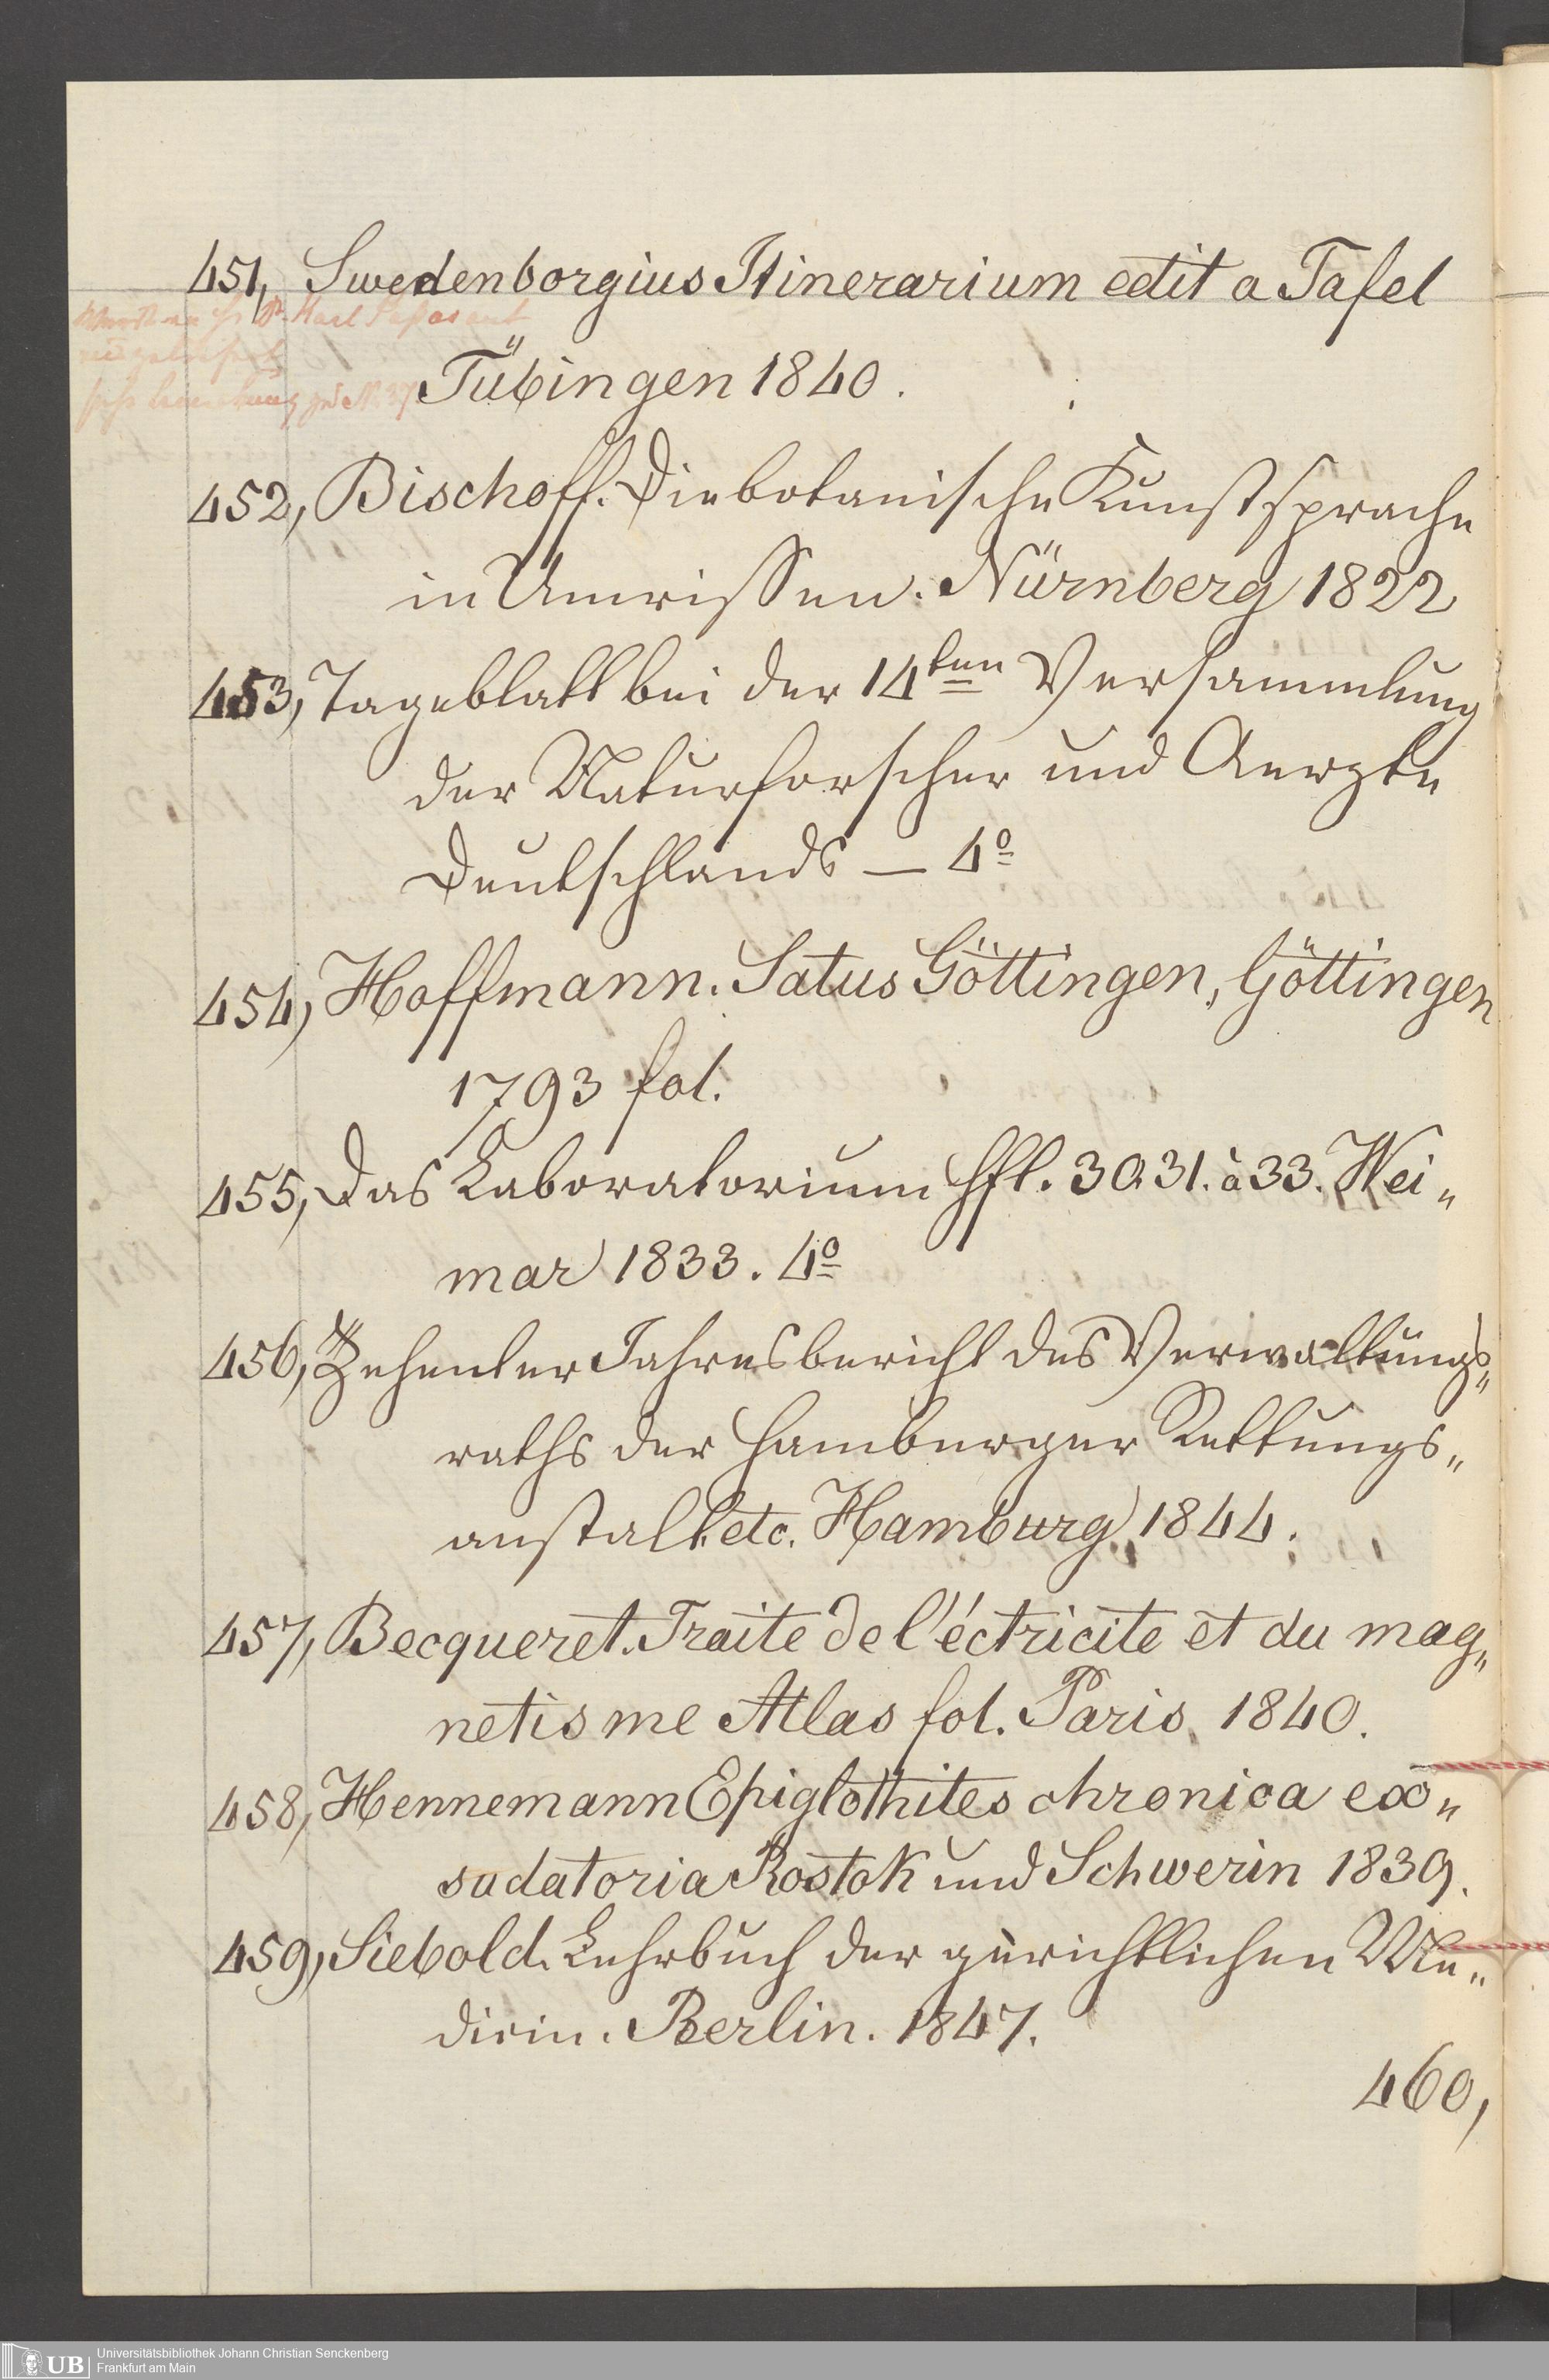 451, Swedenborgius Itinerarium edit a Tafel
Karl Passavant
Tübingen 1840.
452, Bischoff. Die botanische Kunstsprache
in Umrissen. Nürnberg 1822
453, Tageblatt bei der 14ten Versammlung
der Naturforscher und Aerzte
Deutschlands — 4o
454, Hoffmann. Satus Göttingen, Göttingen
1793 fol.
455, Das Laboratorium Hft. 30. 31. à 33. Wei„
mar 1833. 4o
456, Zehenter Jahresbericht des Verwaltungs„
raths der Hamburger Rettungs„
anstalt etc. Hamburg 1844.
457, Becqueret. Traite de l'éctricite et du mag„
netisme Atlas fol. Paris. 1840.
458, Hennemann Epiglothites chronica ex„
sudatoria Rostok und Schwerin 1839.
459, Siebold. Lehrbuch der gerichtlichen Me„
dicin. Berlin. 1847.
460,
UB
Universitätsbibliothek Johann Christian Senckenberg
Frankfurt am Main